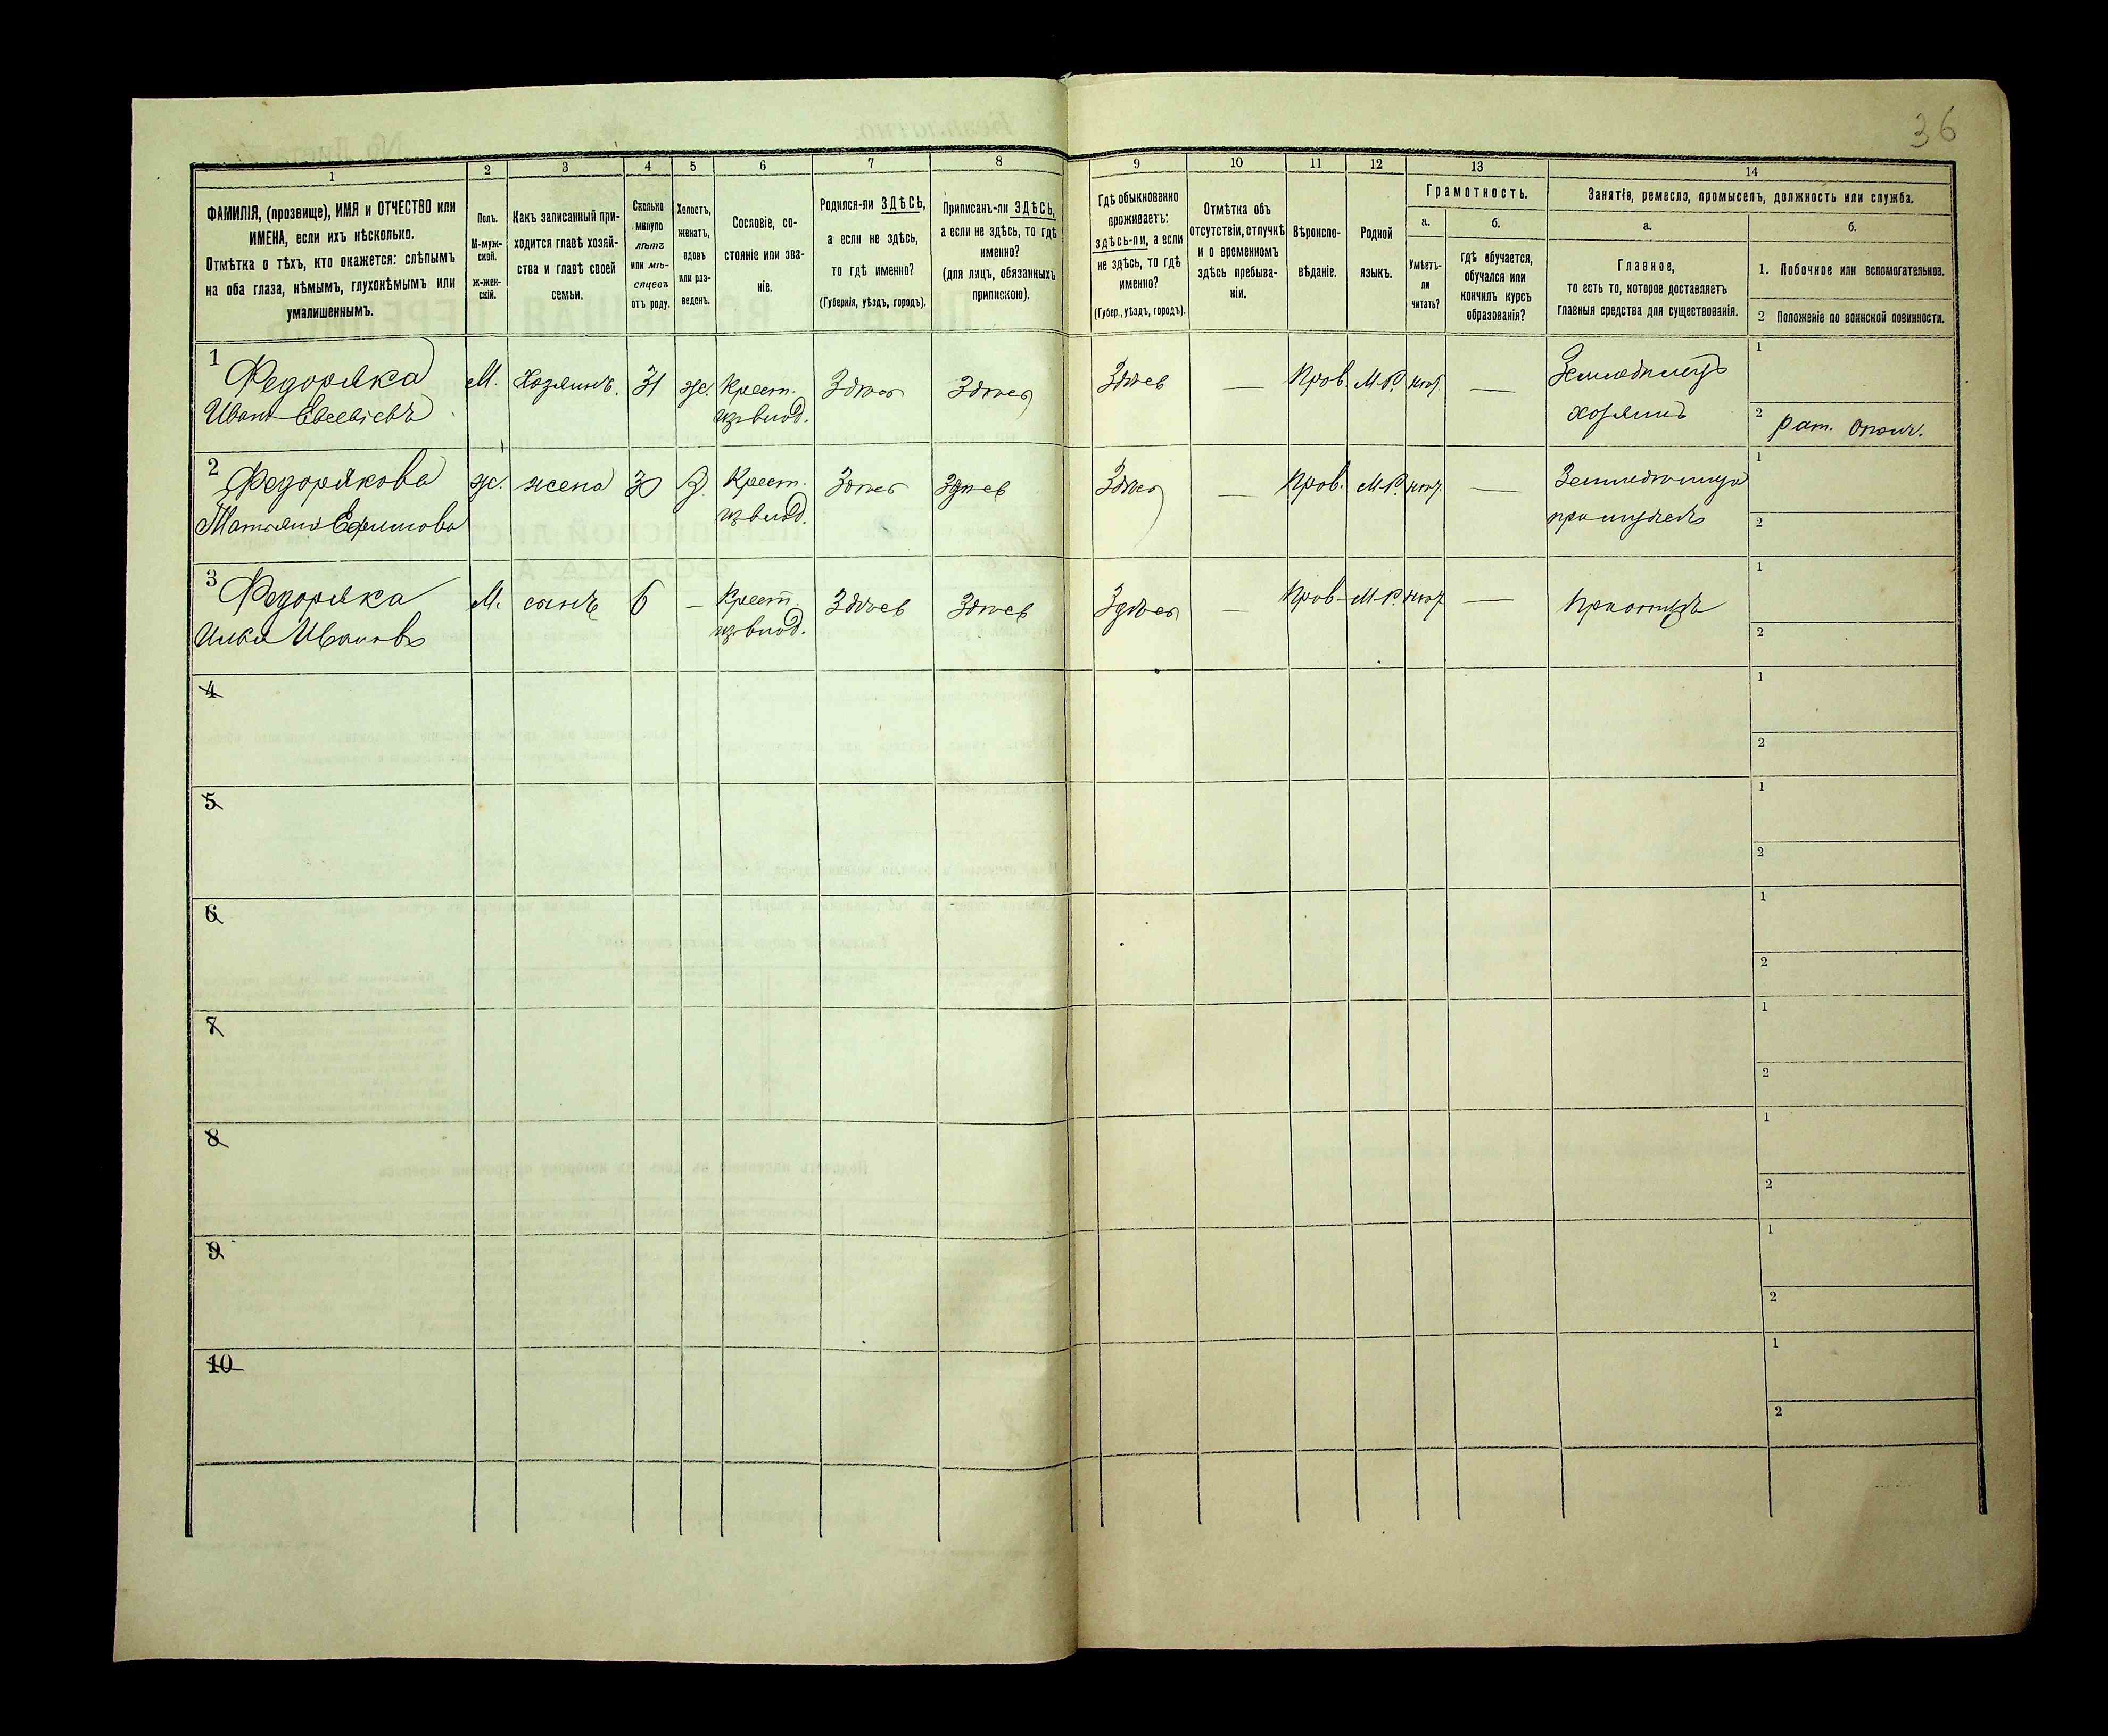 36
1 2 3 4 5 6 7 8 9 10 11 12 13 14
ФАМИЛІЯ, (прозвище), ИМЯ и ОТЧЕСТВО или
ИМЕНА, если ихъ нѣсколько.
Отмѣтка о тѣхъ, кто окажется: слѣпымъ
на оба глаза, нѣмымъ, глухонѣмымъ или
умалишеннымъ.
Полъ.
М-муж-
ской.
Ж-жен-
скій.
Какъ записанный при-
ходится главѣ хозяй-
ства и главѣ своей
семьи.
Сколько
минуло
лѣтъ
или мѣ-
сяцевъ
отъ роду.
Холостъ,
женатъ,
вдовъ
или раз-
веденъ.
Сословіе, со-
стояніе или зва-
ніе.
Родился-ли ЗДѢСЬ,
а если не здѣсь,
то гдѣ именно?
(Губернія, уѣздъ, городъ).
Приписанъ-ли ЗДѢСЬ,
а если не здѣсь, то гдѣ
именно?
(для лицъ, обязанныхъ
припискою).
Гдѣ обыкновенно
проживаетъ:
здѣсь-ли, а если
не здѣсь, то гдѣ
именно?
(Губер., уѣздъ, городъ).
Отмѣтка объ
отсутствіи, отлучкѣ
и о временномъ
здѣсь пребыва-
ніи.
Вѣроиспо-
вѣданіе.
Родной
языкъ.
Грамотность.
а.
Умѣетъ-
ли
читать?
б.
гдѣ обучается,
обучался или
кончилъ курсъ
образованія?
Занятія, ремесло, промыселъ, должность или служба.
а.
Главное,
то есть то, которое доставляетъ
главныя средства для существованія.
б.
1. Побочное или вспомогательное.
2 Положеніе по воинской повинности.
1 Федоряка М. Хозяинъ. 31 ж. Крест. Здѣсь Здѣсь Здѣсь — Прав. М-Р. нѣт. — Земледѣлецъ 1
Иванъ Евсевіевъ из влад. хозяинъ 2 рат. ополч.
2 Федорякова ж. жена 30 З. Крест. Здѣсь Здѣсь Здѣсь — Прав. М-Р. нѣт. — Земледѣлица 1
Татьяна Ефимова из влад. при мужѣ 2
3 Федоряка М. сынъ 6 — Крест. Здѣсь Здѣсь Здѣсь — Прав. М-Р. нѣт. — при отцѣ 1
Ивановъ из влад. 2
4 1
2
5 1
2
6 1
2
7 1
2
8 1
2
9 1
2
10 1
2